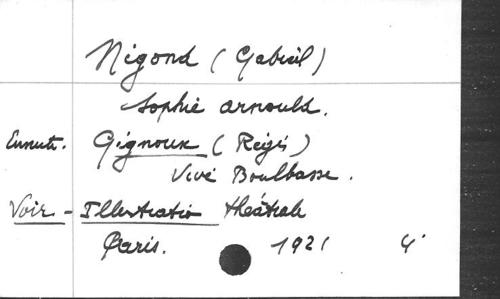 Nigond (Gabriel)
Sophie Arnould.
Ensuite. Gignoux (Régis)
Vive Boulbasse.
Voir - Illustration théâtrale
Paris. 1921 4°